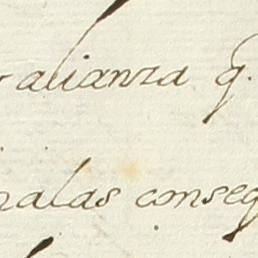 alianza q.
nalas conseq